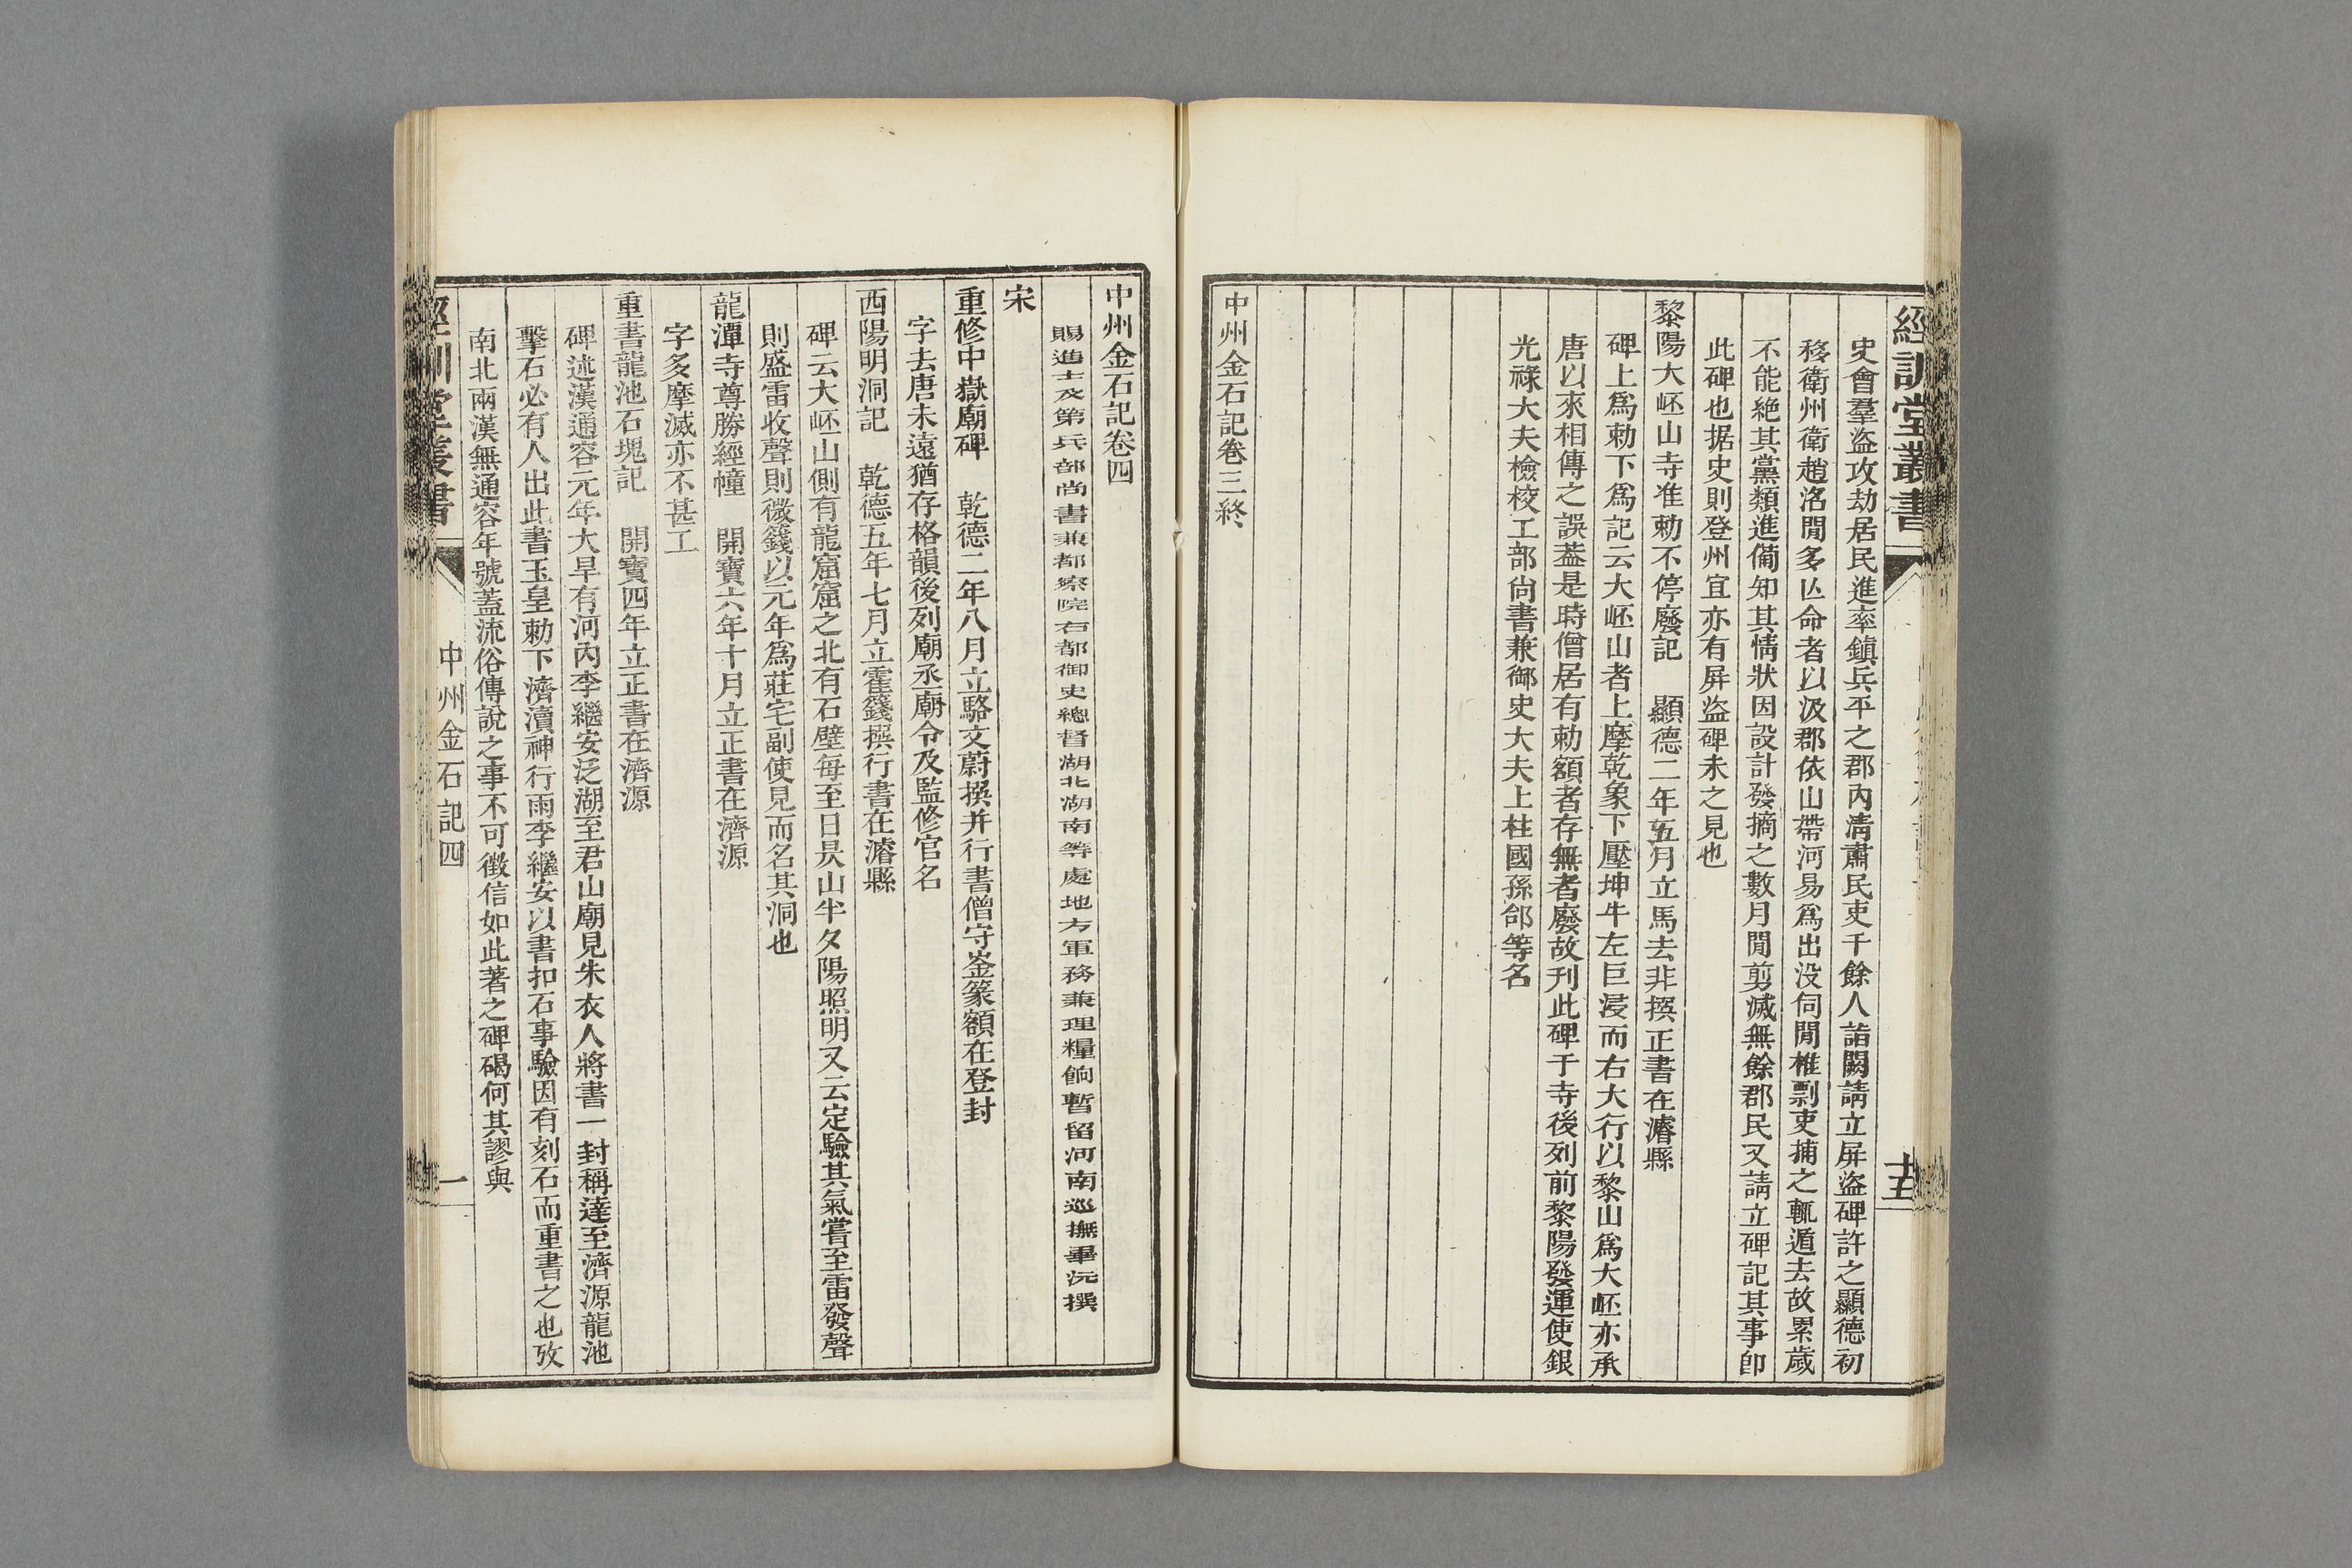 經訓堂叢書
史會羣盜攻劫居民進率鎮兵平之郡內淸肅民吏千餘人詣闕請立屛盜碑許之顯德初
移衛州衛趙洛閒多亾命者以汲郡依山帶河易爲出没伺閒椎剽吏捕之輒遁去故累歲
不能絶其黨類進備知其情狀因設計發摘之數月閒剪滅無餘郡民又請立碑記其事卽
此碑也据史則登州宜亦有屛盜碑未之見也
黎陽大岯山寺准勅不停廢記　顯德二年五月立馬去非撰正書在濬縣
碑上爲勅下爲記云大岯山者上摩乾象下壓坤牛左巨浸而右大行以黎山爲大岯亦承
唐以來相傳之誤葢是時僧居有勅額者存無者廢故刊此碑于寺後列前黎陽發運使銀
光祿大夫檢校工部尙書兼御史大夫上柱國孫郃等名
中州金石記卷三終
中州金石記卷四
賜進士及第兵部尚書兼都察院右都御史總督湖北湖南等處地方軍務兼理糧餉暫留河南巡撫畢沅撰
宋
重修中嶽廟碑　乾德二年八月立駱文蔚撰并行書僧守崟篆額在登封
字去唐未遠猶存格韻後列廟丞廟令及監修官名
西陽明洞記　乾德五年七月立霍籛撰行書在濬縣
碑云大岯山側有龍窟窟之北有石壁每至日昃山半夕陽照明又云定驗其氣嘗至雷發聲
則盛雷收聲則微籛以元年爲莊宅副使見而名其洞也
龍潭寺尊勝經幢　開寶六年十月立正書在濟源
字多摩滅亦不甚工
重書龍池石塊記　開寶四年立正書在濟源
碑述漢通容元年大旱有河內李繼安泛湖至君山廟見朱衣人將書一封稱達至濟源龍池
擊石必有人出此書玉皇勅下濟瀆神行雨李繼安以書扣石事驗因有刻石而重書之也攷
南北兩漢無通容年號蓋流俗傳說之事不可徵信如此著之碑碣何其謬與
經訓堂叢書
中州金石記四
一